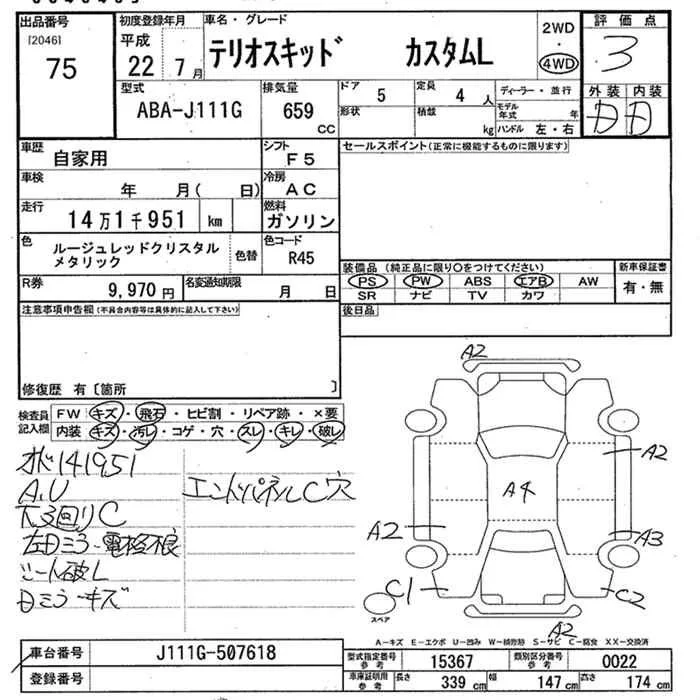 出品番号
[2046]
75
初度登録年月
平成
22 7月
車名・グレード
テリオスキッド カスタムL
2WD
4WD
評価点
3
外装 内装
D D
型式
ABA-J111G
排気量
659
CC
ドア
5
定員
4 人
ディーラー・並行
形状
積載
kg
モデル年式 年
ハンドル 左・右
車歴
自家用
シフト
F5
セールスポイント(正常に機能するものに限ります)
車検
年 月( 日)
冷房
AC
走行
14万1千951 km
燃料
ガソリン
色
ルージュレッドクリスタル
メタリック
色替
色コード
R45
装備品(純正品に限り○をつけてください)
新車保証書
PS PW ABS エアB AW
SR ナビ TV カワ
有・無
R券
9,970円
名変通知期限
月 日
注意事項申告欄(不具合内容等は具体的に記入して下さい)
後日品
修復歴 有〔箇所 〕
検査員
記入欄
FW キズ・飛石・ヒビ割・リペア跡・×要
内装 キズ・汚レ・コゲ・穴・スレ・キレ・破レ
オド141951
A,U
下回りC
左Dミラー電格不良
シート破レ
Dミラーキズ
エンドパネルC穴
A2
A2
A4
A2
A3
C1
C2
A2
スペア
A-キズ E-エクボ U-凹み W-補修跡 S-サビ C-腐食 XX-交換済
車台番号
J111G-507618
登録番号
型式指定番号
参考
15367
類別区分番号
参考
0022
車庫証明用
参考
長さ 339 cm 幅 147 cm 高さ 174 cm